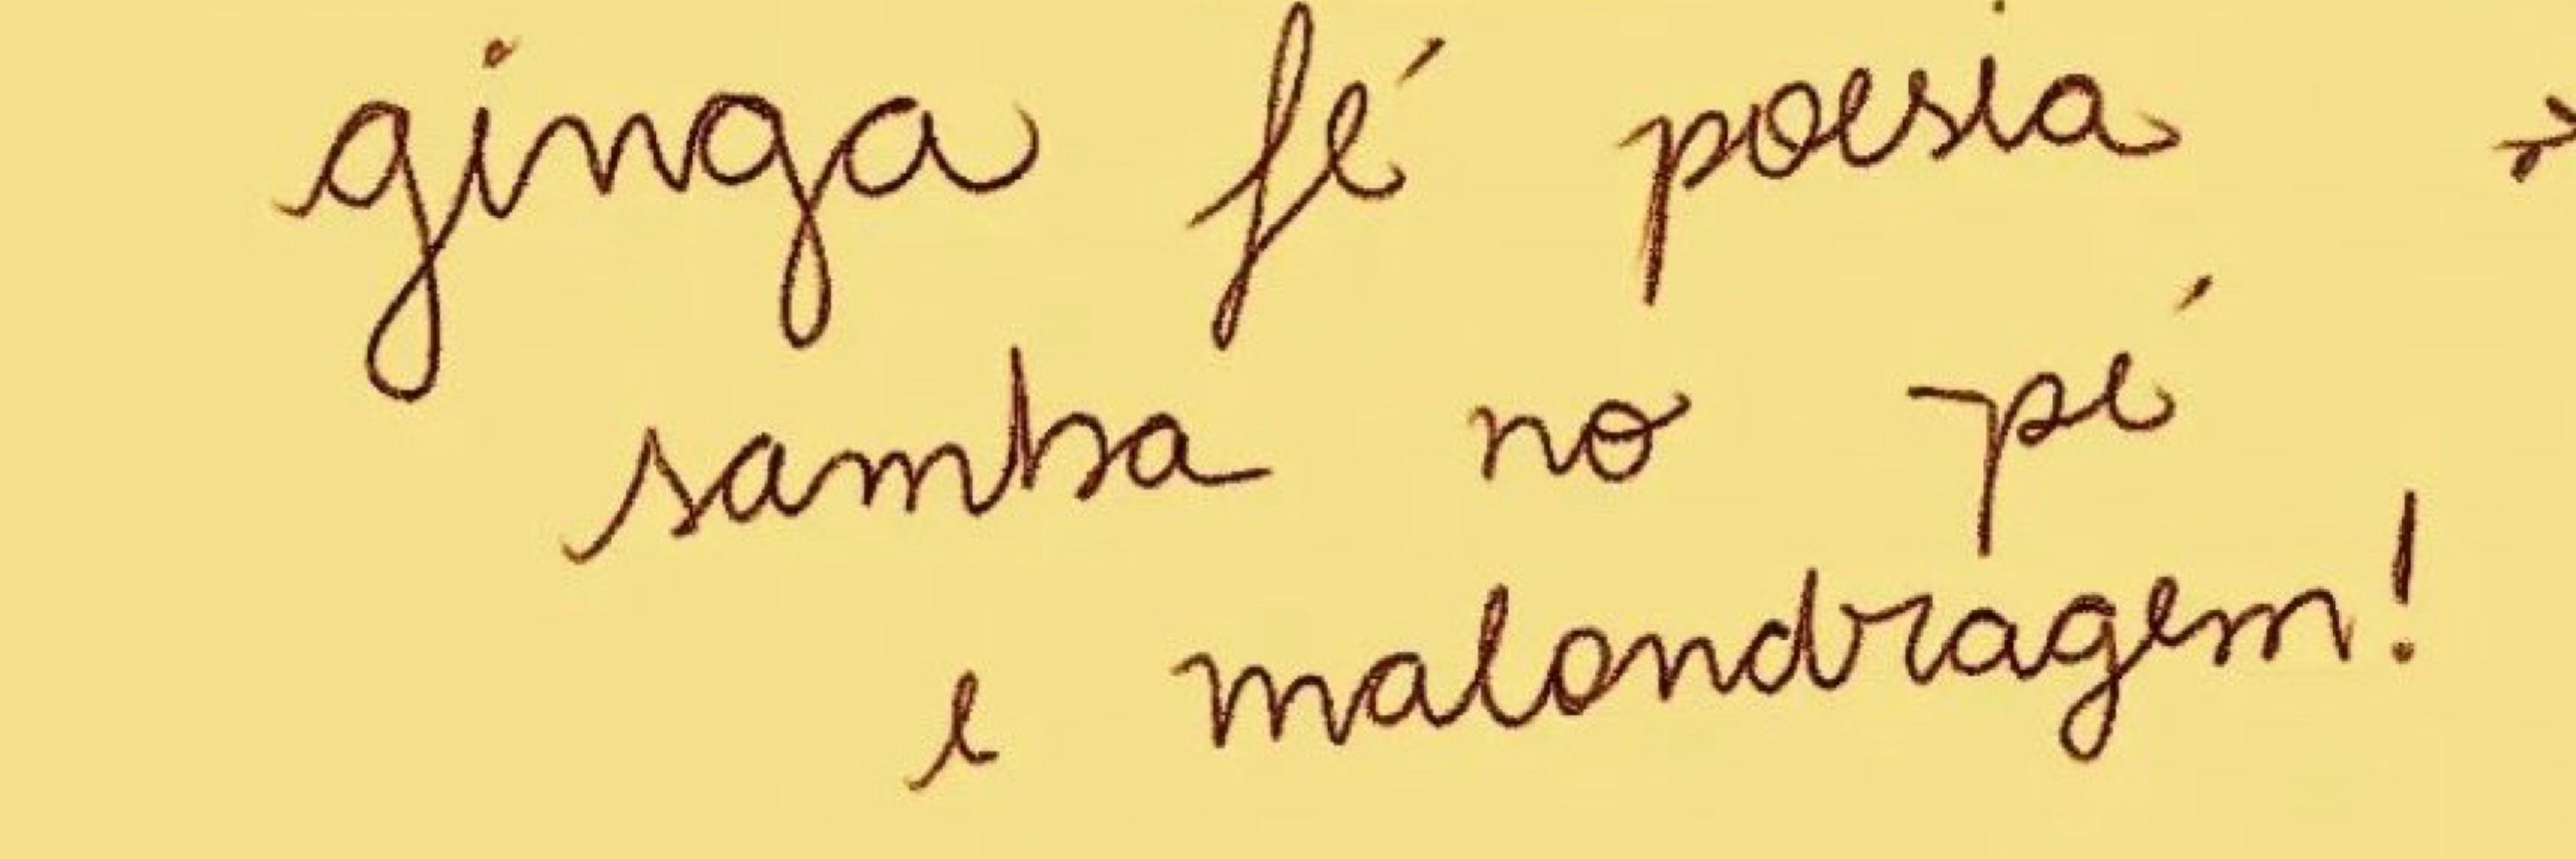 ginga fé poesia
samba no pé
e malandragem!